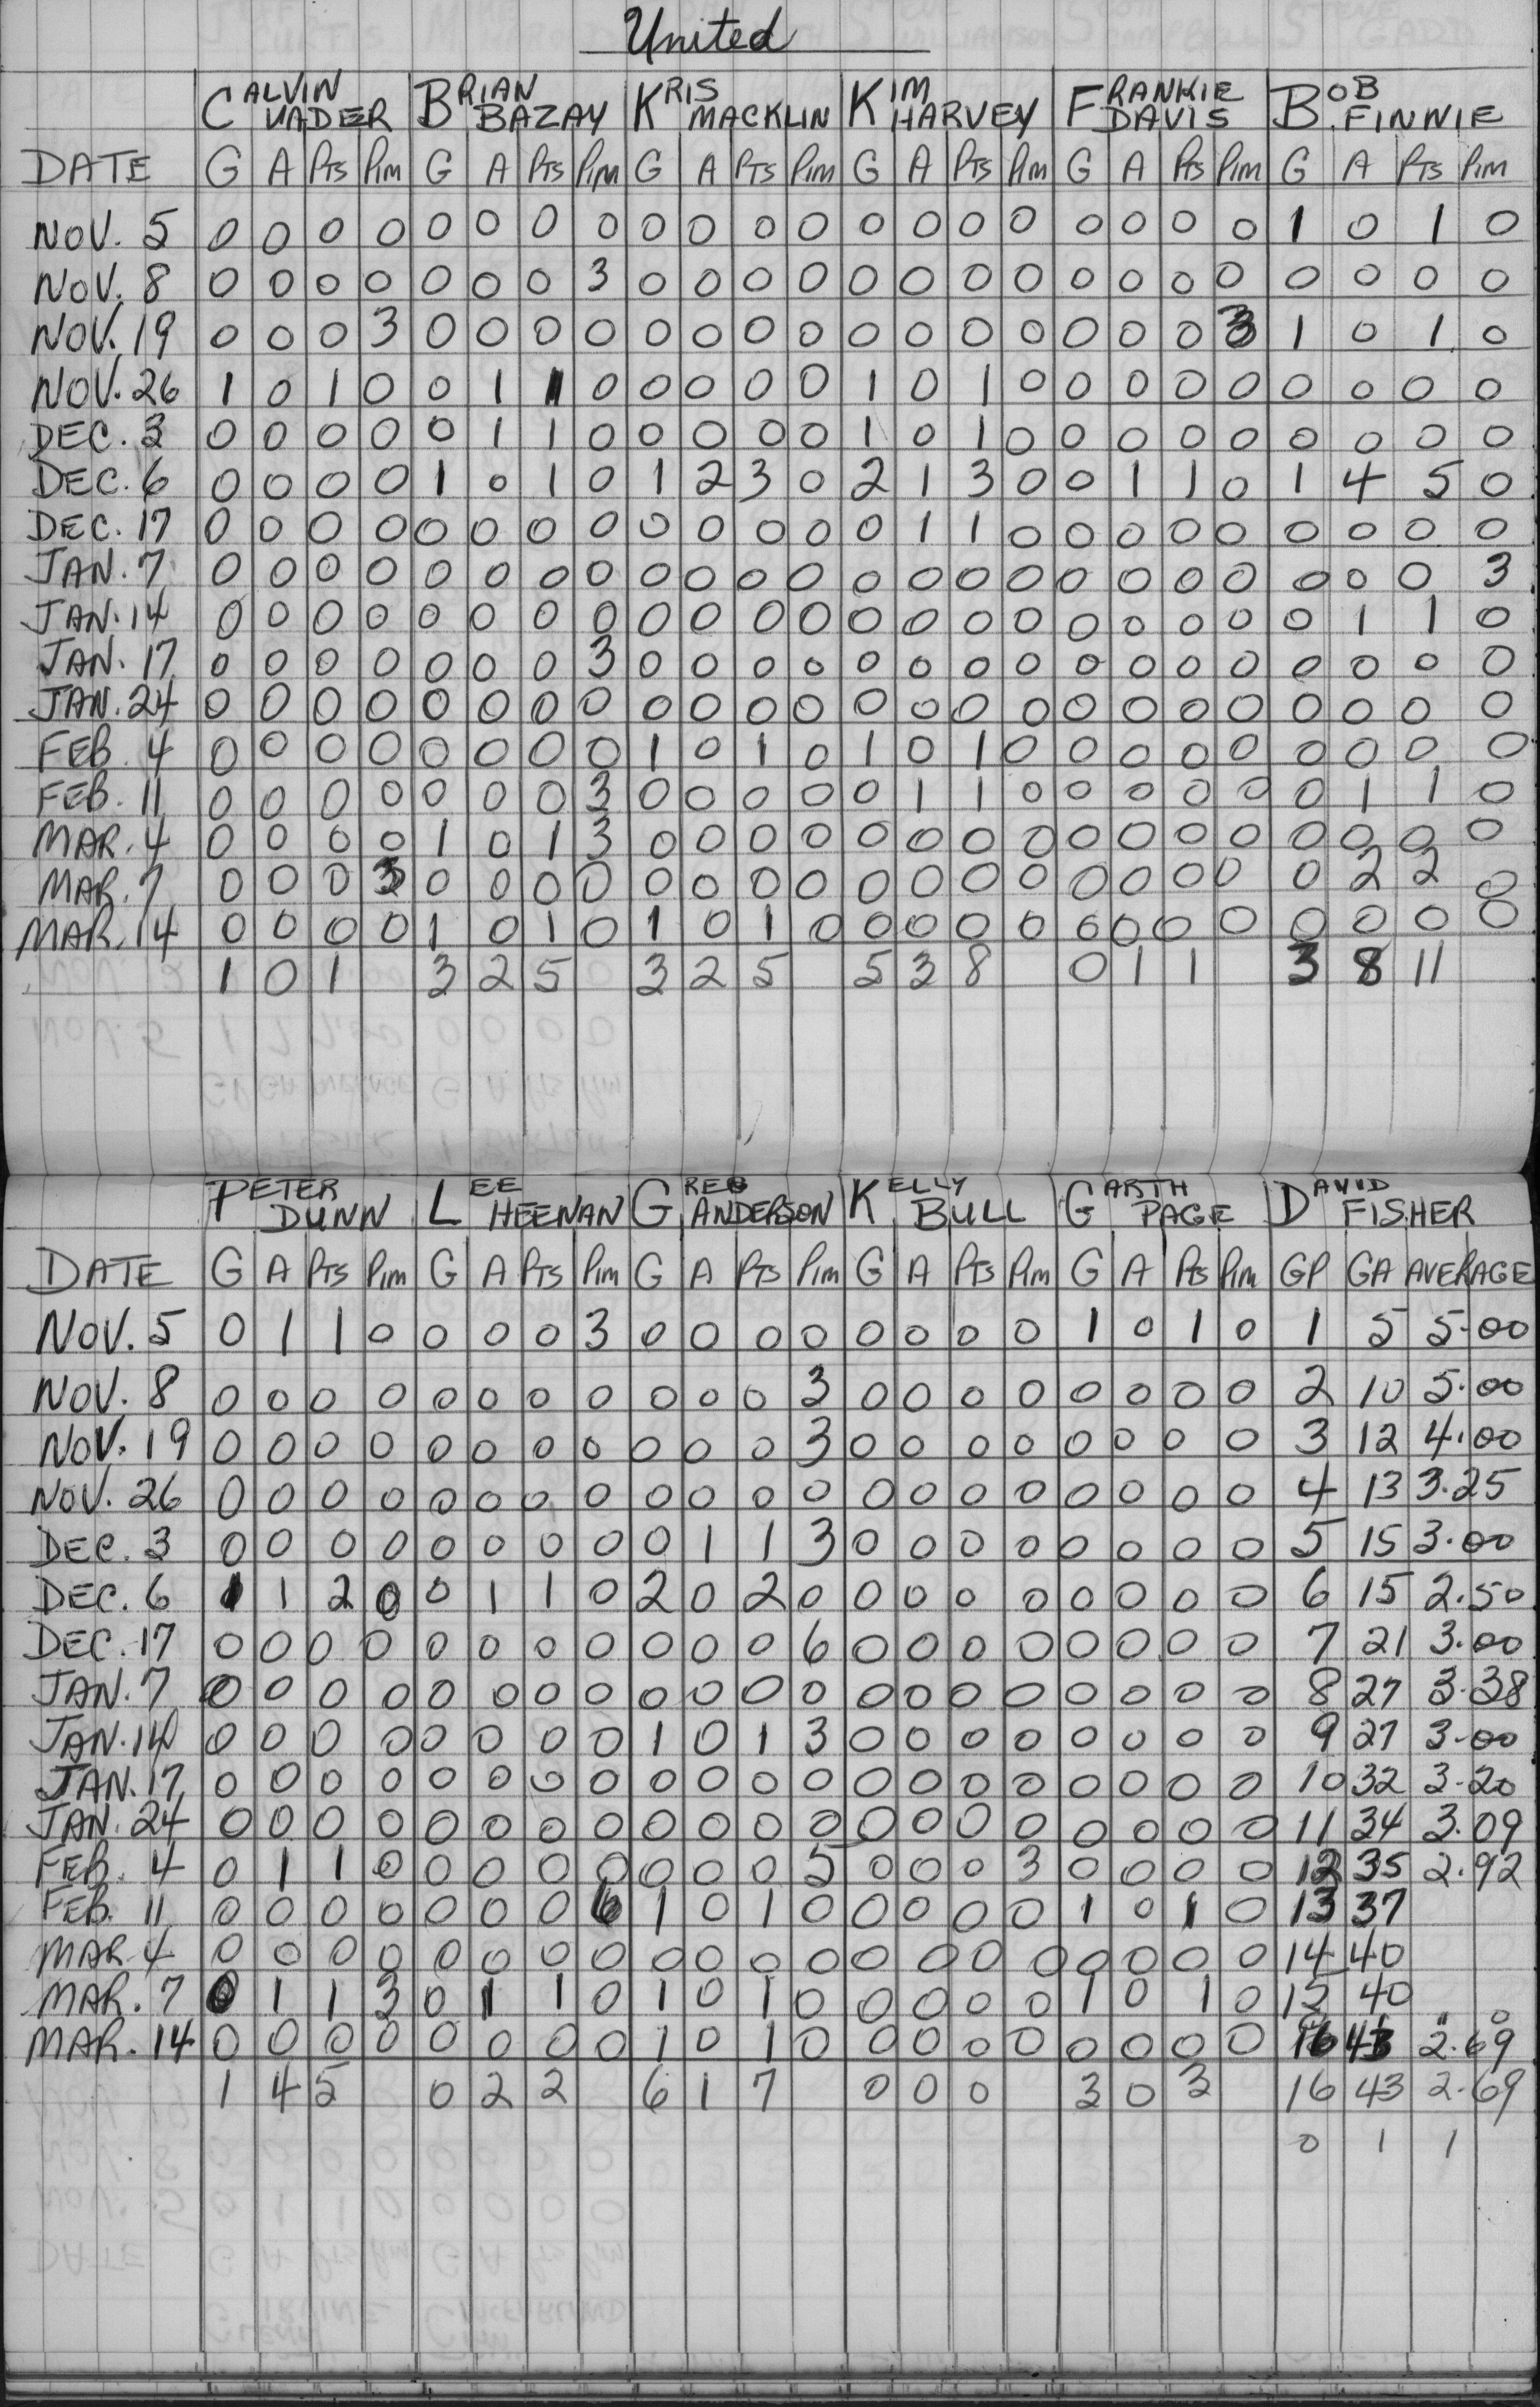 United
CALVIN VADER BRIAN BAZAY KRIS MACKLIN KIM HARVEY FRANKIE DAVIS BOB FINNIE
DATE G A Pts Pim G A Pts Pim G A Pts Pim G A Pts Pim G A Pts Pim G A Pts Pim
NOV. 5 0 0 0 0 0 0 0 0 0 0 0 0 0 0 0 0 0 0 0 0 1 0 1 0
NOV. 8 0 0 0 0 0 0 0 3 0 0 0 0 0 0 0 0 0 0 0 0 0 0 0 0
NOV. 19 0 0 0 3 0 0 0 0 0 0 0 0 0 0 0 0 0 0 0 3 1 0 1 0
NOV. 26 1 0 1 0 0 1 1 0 0 0 0 0 1 0 1 0 0 0 0 0 0 0 0 0
DEC. 3 0 0 0 0 0 1 1 0 0 0 0 0 1 0 1 0 0 0 0 0 0 0 0 0
DEC. 6 0 0 0 0 1 0 1 0 1 2 3 0 2 1 3 0 0 1 1 0 1 4 5 0
DEC. 17 0 0 0 0 0 0 0 0 0 0 0 0 0 1 1 0 0 0 0 0 0 0 0 0
JAN. 7 0 0 0 0 0 0 0 0 0 0 0 0 0 0 0 0 0 0 0 0 0 0 0 3
JAN. 14 0 0 0 0 0 0 0 0 0 0 0 0 0 0 0 0 0 0 0 0 0 1 1 0
JAN. 17 0 0 0 0 0 0 0 3 0 0 0 0 0 0 0 0 0 0 0 0 0 0 0 0
JAN. 24 0 0 0 0 0 0 0 0 0 0 0 0 0 0 0 0 0 0 0 0 0 0 0 0
FEB. 4 0 0 0 0 0 0 0 0 1 0 1 0 1 0 1 0 0 0 0 0 0 0 0 0
FEB. 11 0 0 0 0 0 0 0 3 0 0 0 0 0 1 1 0 0 0 0 0 0 1 1 0
MAR. 4 0 0 0 0 1 0 1 3 0 0 0 0 0 0 0 0 0 0 0 0 0 0 0 0
MAR. 7 0 0 0 3 0 0 0 0 0 0 0 0 0 0 0 0 0 0 0 0 0 2 2 0
MAR. 14 0 0 0 0 1 0 1 0 1 0 1 0 0 0 0 0 0 0 0 0 0 0 0 0
1 0 1 3 2 5 3 2 5 5 3 8 0 1 1 3 8 11
PETER DUNN LEE HEENAN GREG ANDERSON KELLY BULL GARTH PAGE DAVID FISHER
DATE G A Pts Pim G A Pts Pim G A Pts Pim G A Pts Pim G A Pts Pim GP GA AVERAGE
NOV. 5 0 1 1 0 0 0 0 3 0 0 0 0 0 0 0 0 1 0 1 0 1 5 5.00
NOV. 8 0 0 0 0 0 0 0 0 0 0 0 3 0 0 0 0 0 0 0 0 2 10 5.00
NOV. 19 0 0 0 0 0 0 0 0 0 0 0 3 0 0 0 0 0 0 0 0 3 12 4.00
NOV. 26 0 0 0 0 0 0 0 0 0 0 0 0 0 0 0 0 0 0 0 0 4 13 3.25
DEC. 3 0 0 0 0 0 0 0 0 0 1 1 3 0 0 0 0 0 0 0 0 5 15 3.00
DEC. 6 1 1 2 0 0 1 1 0 2 0 2 0 0 0 0 0 0 0 0 0 6 15 2.50
DEC. 17 0 0 0 0 0 0 0 0 0 0 0 6 0 0 0 0 0 0 0 0 7 21 3.00
JAN. 7 0 0 0 0 0 0 0 0 0 0 0 0 0 0 0 0 0 0 0 0 8 27 3.38
JAN. 14 0 0 0 0 0 0 0 0 1 0 1 3 0 0 0 0 0 0 0 0 9 27 3.00
JAN. 17 0 0 0 0 0 0 0 0 0 0 0 0 0 0 0 0 0 0 0 0 10 32 3.20
JAN. 24 0 0 0 0 0 0 0 0 0 0 0 0 0 0 0 0 0 0 0 0 11 34 3.09
FEB. 4 0 1 1 0 0 0 0 0 0 0 0 5 0 0 0 3 0 0 0 0 12 35 2.92
FEB. 11 0 0 0 0 0 0 0 6 1 0 1 0 0 0 0 0 1 0 1 0 13 37
MAR 4 0 0 0 0 0 0 0 0 0 0 0 0 0 0 0 0 0 0 0 0 14 40
MAR. 7 0 1 1 3 0 1 1 0 1 0 1 0 0 0 0 0 1 0 1 0 15 40
MAR. 14 0 0 0 0 0 0 0 0 1 0 1 0 0 0 0 0 0 0 0 0 16 43 2.69
1 4 5 0 2 2 6 1 7 0 0 0 3 0 3 16 43 2.69
0 1 1